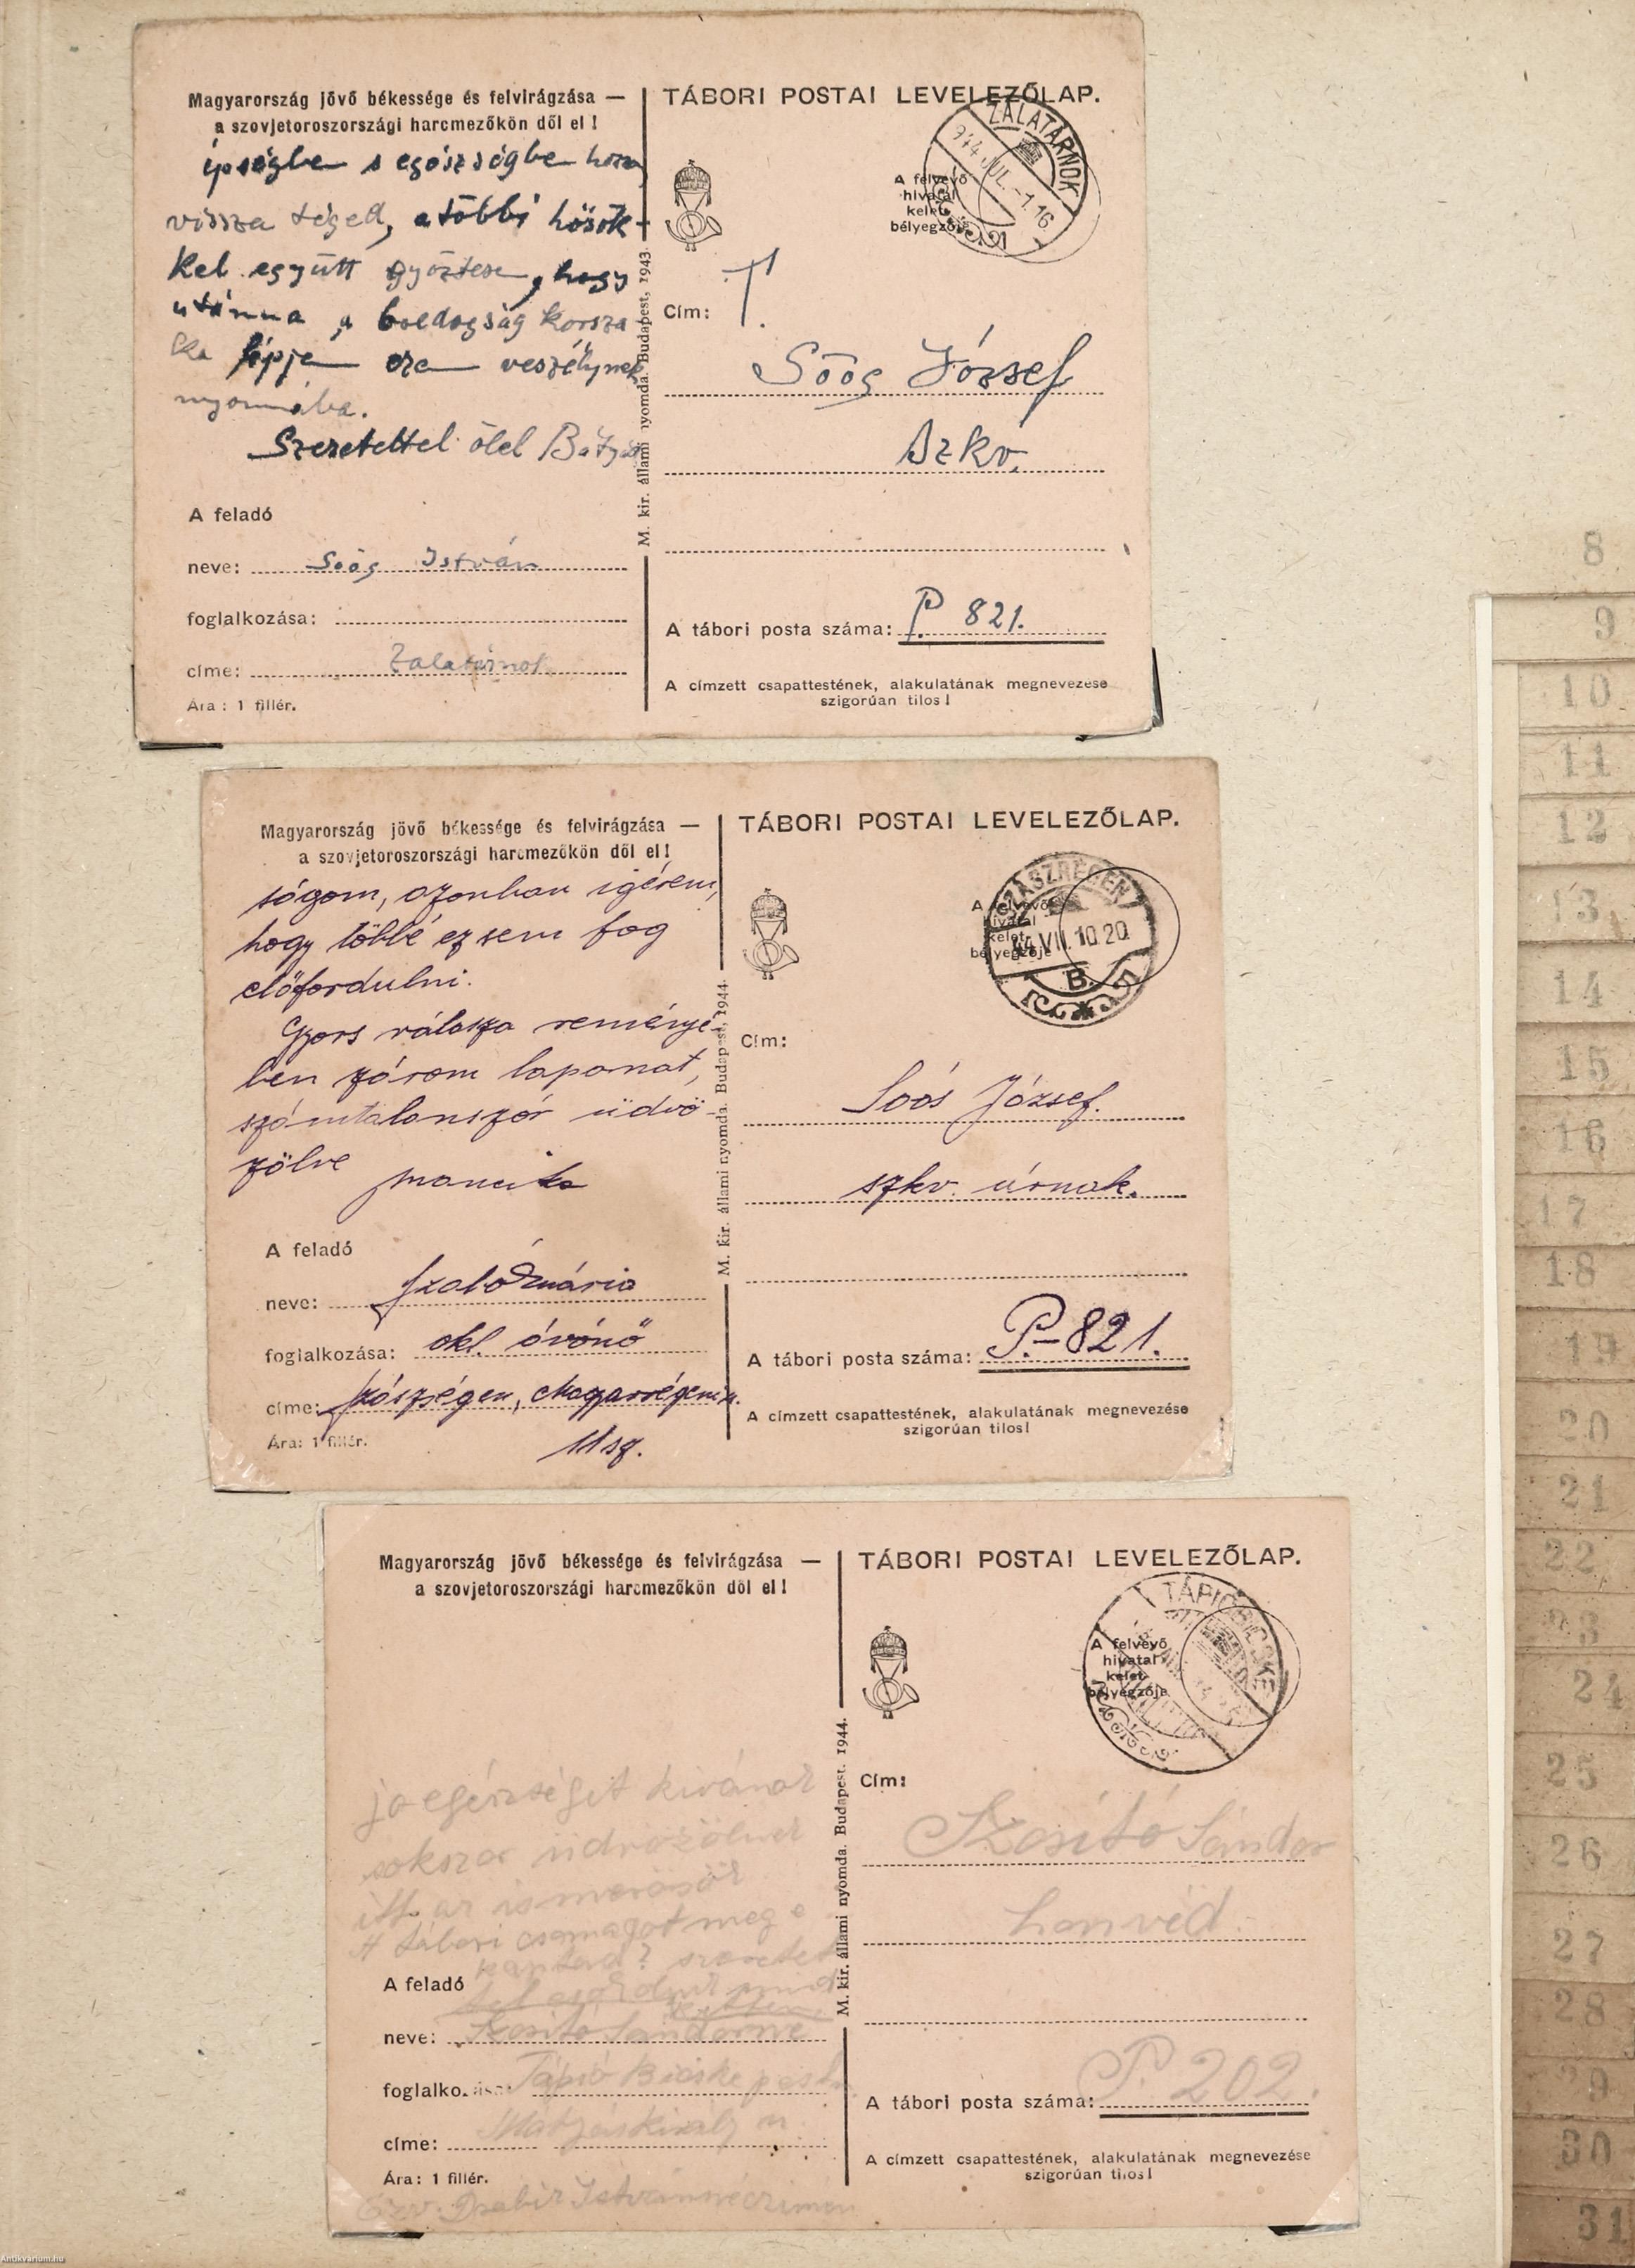 Magyarország jövő békessége és felvirágzása —
a szovjetoroszországi harcmezőkön dől el!
épségbe s egészségbe hozza
vissza téged, a többi hősök-
kel együtt győztesen, hogy
utánna a boldogság korsza-
ka lépjen eze veszélynek
nyomába.
Szeretettel ölel Bátyád
A feladó
neve: Soós István
foglalkozása:
címe: Zalatárnok
Ára: 1 fillér.
M. kir. állami nyomda. Budapest, 1943.
TÁBORI POSTAI LEVELEZŐLAP.
ZALATÁRNOK
944 JUL. -1. 16
A felvevő
hivatal
kelet-
bélyegzője
Cím: T.
Soós József
szkv.
A tábori posta száma: P. 821.
A címzett csapattestének, alakulatának megnevezése
szigorúan tilos!
Magyarország jövő békessége és felvirágzása —
a szovjetoroszországi harcmezőkön dől el!
ságom, azonban igérem,
hogy többé ez sem fog
előfordulni.
Gyors válasza reményé-
ben zárom lapomat,
számtalanszór üdvö-
zölve Mancika
A feladó
neve: Szabó Mária
foglalkozása: okl. óvónő
címe: Szászrégen, Magyarrégeni u.
11 sz.
Ára: 1 fillér.
M. kir. állami nyomda. Budapest, 1944.
TÁBORI POSTAI LEVELEZŐLAP.
SZÁSZRÉGEN
44 VII. 10 20
B.
A felvevő
hivatal
kelet-
bélyegzője
Cím:
Soós József.
szkv. úrnak.
A tábori posta száma: P.-821.
A címzett csapattestének, alakulatának megnevezése
szigorúan tilos!
Magyarország jövő békessége és felvirágzása —
a szovjetoroszországi harcmezőkön dől el!
jo egészséget kivánok
sokszor üdvözölnek
itt az ismerösök
A tábori csomagot meg e
kaptad? szeretet
tel mind
A feladó
neve: Szositó Sándorné
foglalkozása: Tápió Bicske
címe: Mátyáskirály u.
Ára: 1 fillér.
Istvánné címen
M. kir. állami nyomda. Budapest. 1944.
TÁBORI POSTAI LEVELEZŐLAP.
TÁPIÓBICSKE
A felvevő
hivatal
kelet-
bélyegzője
Cím:
Szositó Sándor
honvéd
A tábori posta száma: P. 202.
A címzett csapattestének, alakulatának megnevezése
szigorúan tilos!
8
9
10
11
12
13
14
15
16
17
18
19
20
21
22
23
24
25
26
27
28
29
30
31
Antikvarium.hu